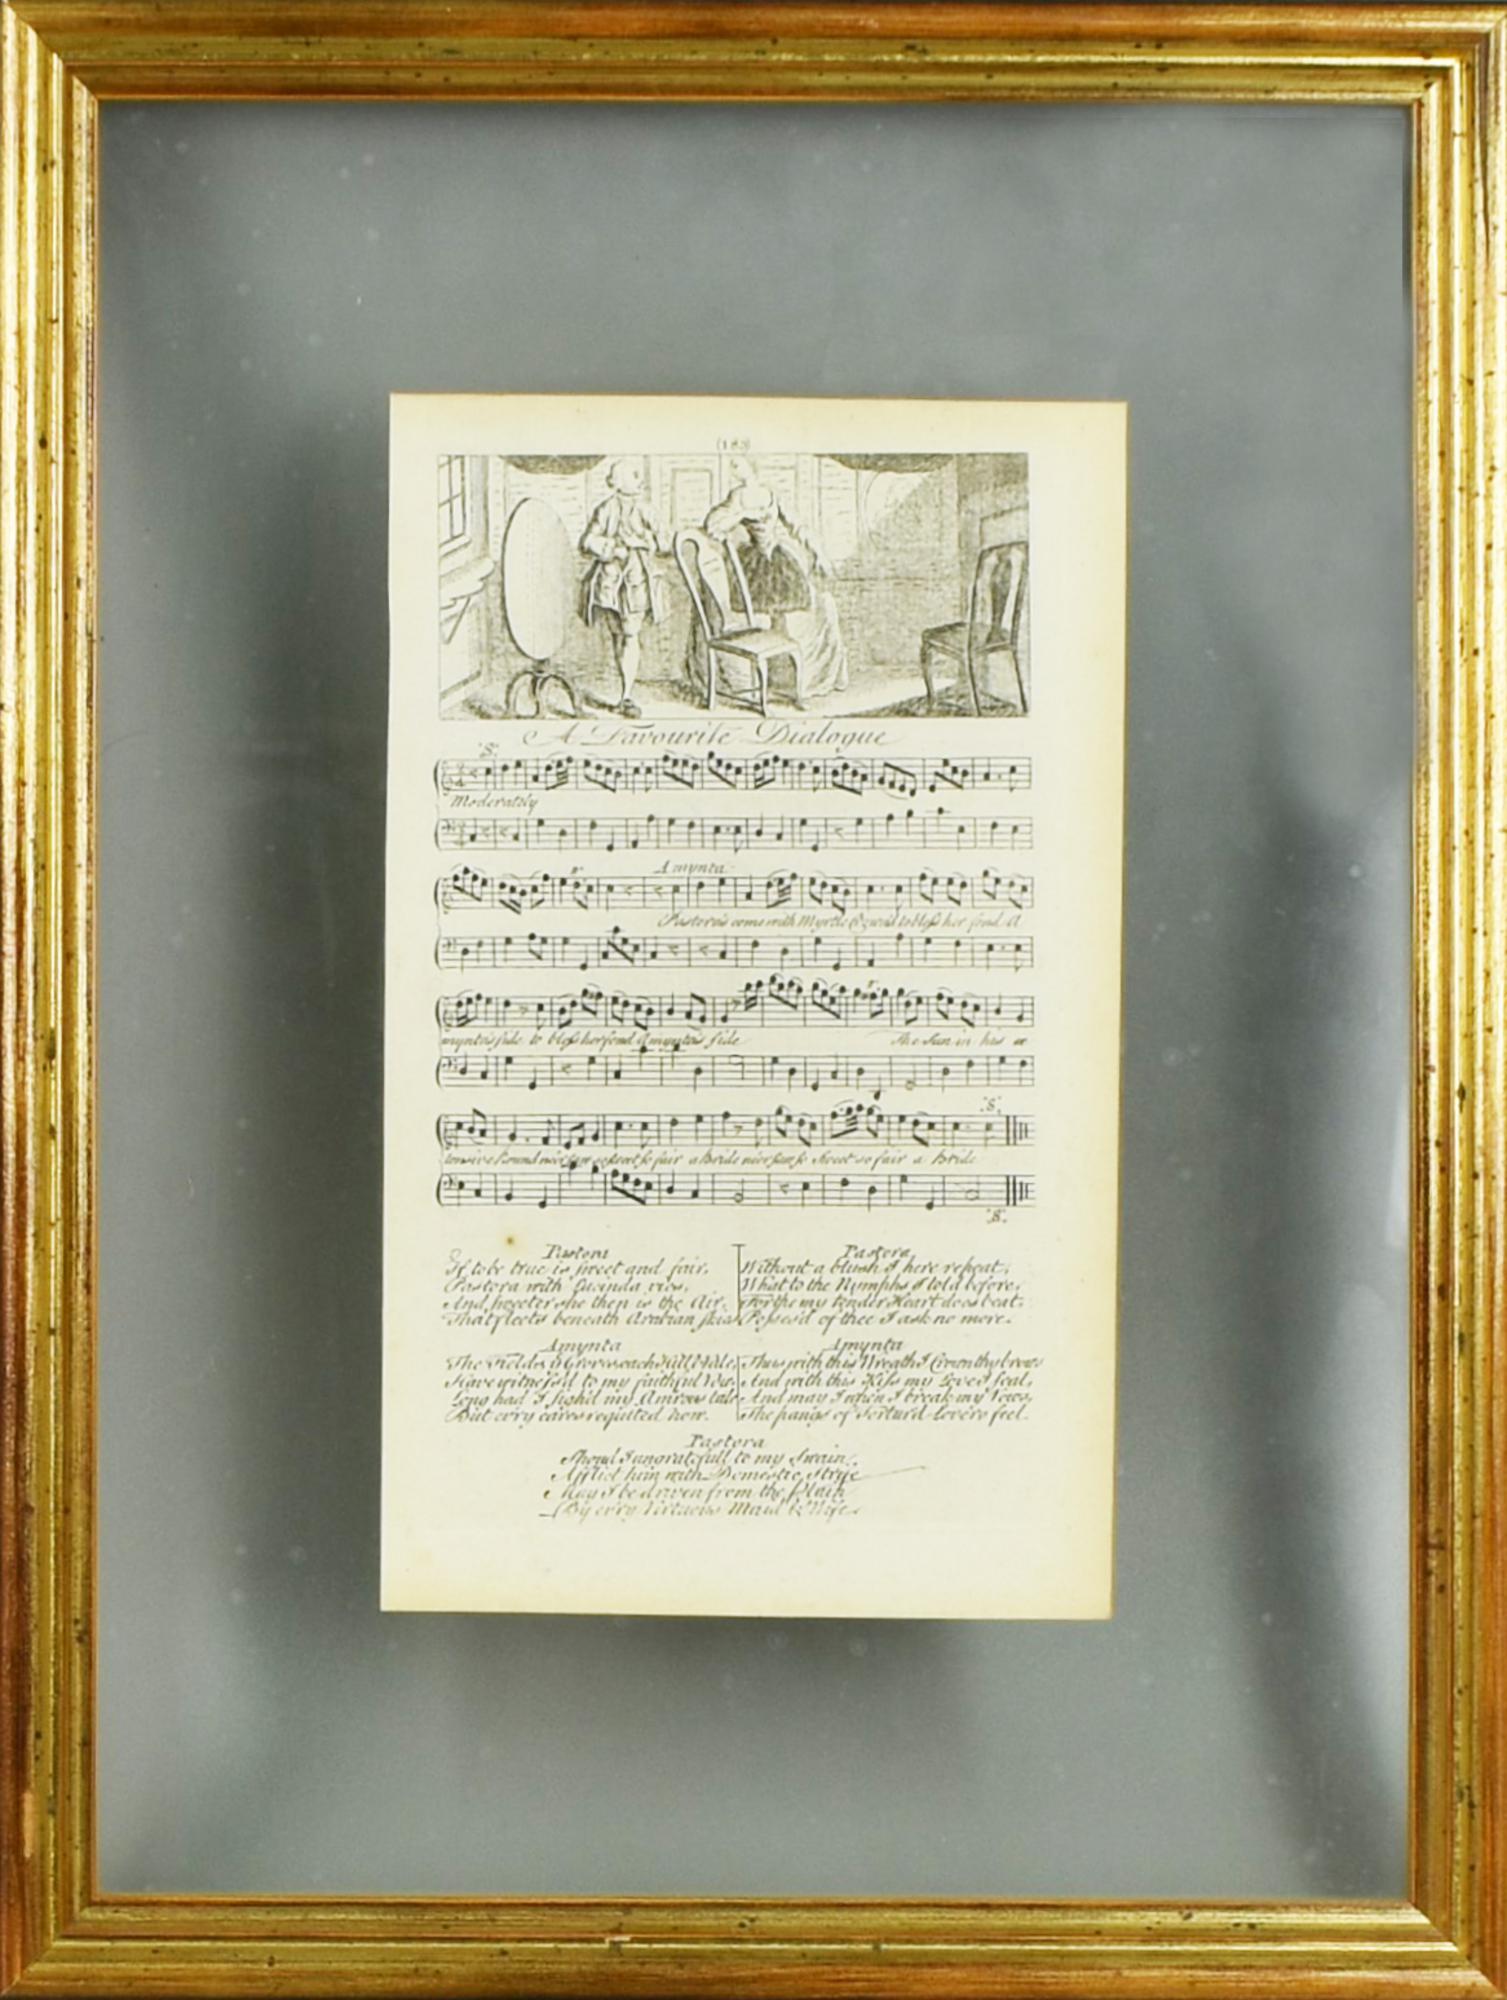 (183)
A Favourite Dialogue
:S:
Moderately
Amynta
Pastora's come with Myrtle to bless her fond A
mynta's side to bless her fond Amynta's side The Sun in his ex
:S:
tensive Round ne'er saw so sweet so fair a Bride ne'er saw so sweet so fair a Bride
:S:
Pastora
If to be true is sweet and fair,
Pastora with Lucinda vies,
And sweeter she then is the Air,
That fleets beneath Arabian skies
Amynta
The Fields & Groves each Hill & Vale
Have witness'd to my faithful Vow
Long had I sigh'd my Am'rous tale
But evry care's requited now.
Pastora
Without a blush I here repeat,
What to the Nymphs I told before,
For the my tender Heart does beat,
Posses'd of thee I ask no more.
Amynta
Thus with this Wreath I Crown thy brows
And with this Kiss my Love I seal,
And may I when I break my Vows,
The pangs of Tortur'd Lovers feel.
Pastora
Shoud I ungratefull to my Swain,
Afflict him with Domestic Strife
May I be driven from the Plain
By evry Virtuous Maid & Wife.